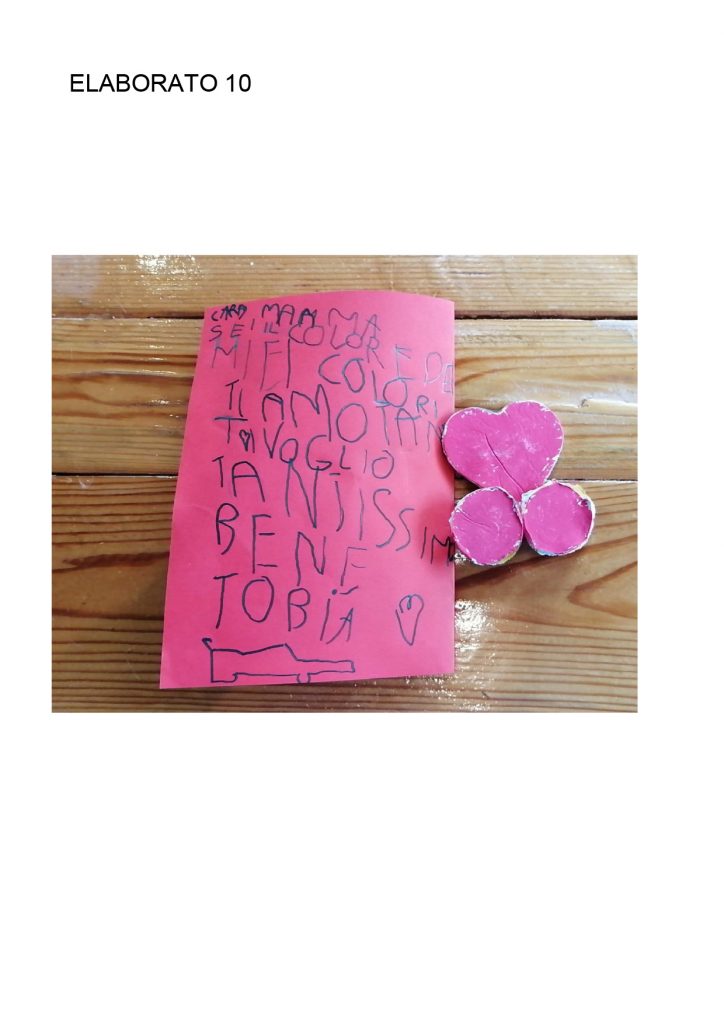 ELABORATO 10
CARA MAMMA
SEI IL COLOR
MIEI COLORE DE
TI COLORI
AMO TAN
T♥ VOGLIO
TANTISSIMO
BENE
TOBIA